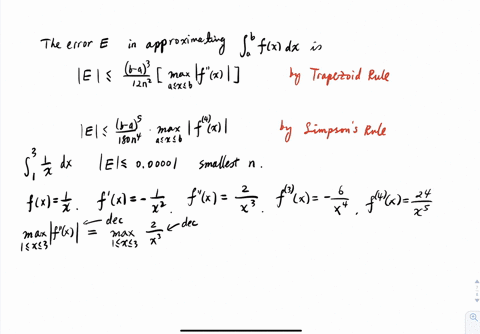 The error E in approximating ∫_a^b f(x) dx is
|E| ≤ (b-a)^3/12n^2 [ max_{a≤x≤b} |f''(x)| ] by Trapezoid Rule
|E| ≤ (b-a)^5/180n^4 · max_{a≤x≤b} |f^(4)(x)| by Simpson's Rule
∫_1^3 1/x dx |E| ≤ 0.0001 smallest n.
f(x) = 1/x, f'(x) = -1/x^2, f''(x) = 2/x^3, f^(3)(x) = -6/x^4, f^(4)(x) = 24/x^5
max_{1≤x≤3} |f''(x)| ← dec = max_{1≤x≤3} 2/x^3 ← dec